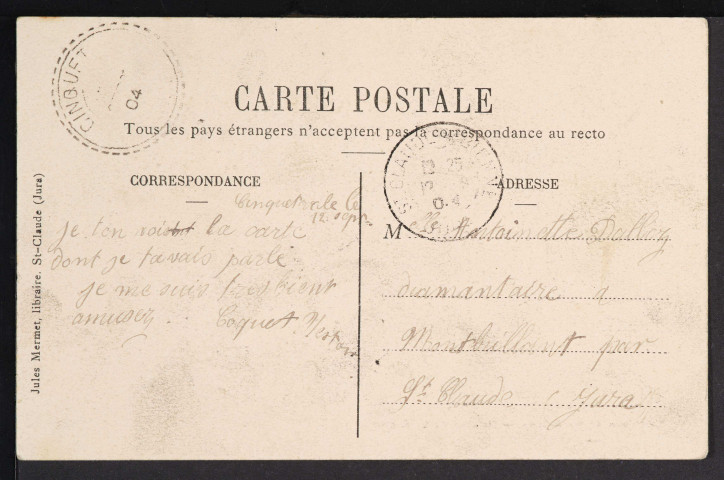 CINQUET
04
CARTE POSTALE
Tous les pays étrangers n'acceptent pas la correspondance au recto
CORRESPONDANCE
ADRESSE
Jules Mermet, libraire. St-Claude (Jura)
ST CLAUDE
25
04
le
12
je ton la carte
dont je tavais parle
je me suis tres bient
amusez. Coquet
Mlle Antoinette Dalloz
diamantaire a
Montbrillant par
St Claude Jura